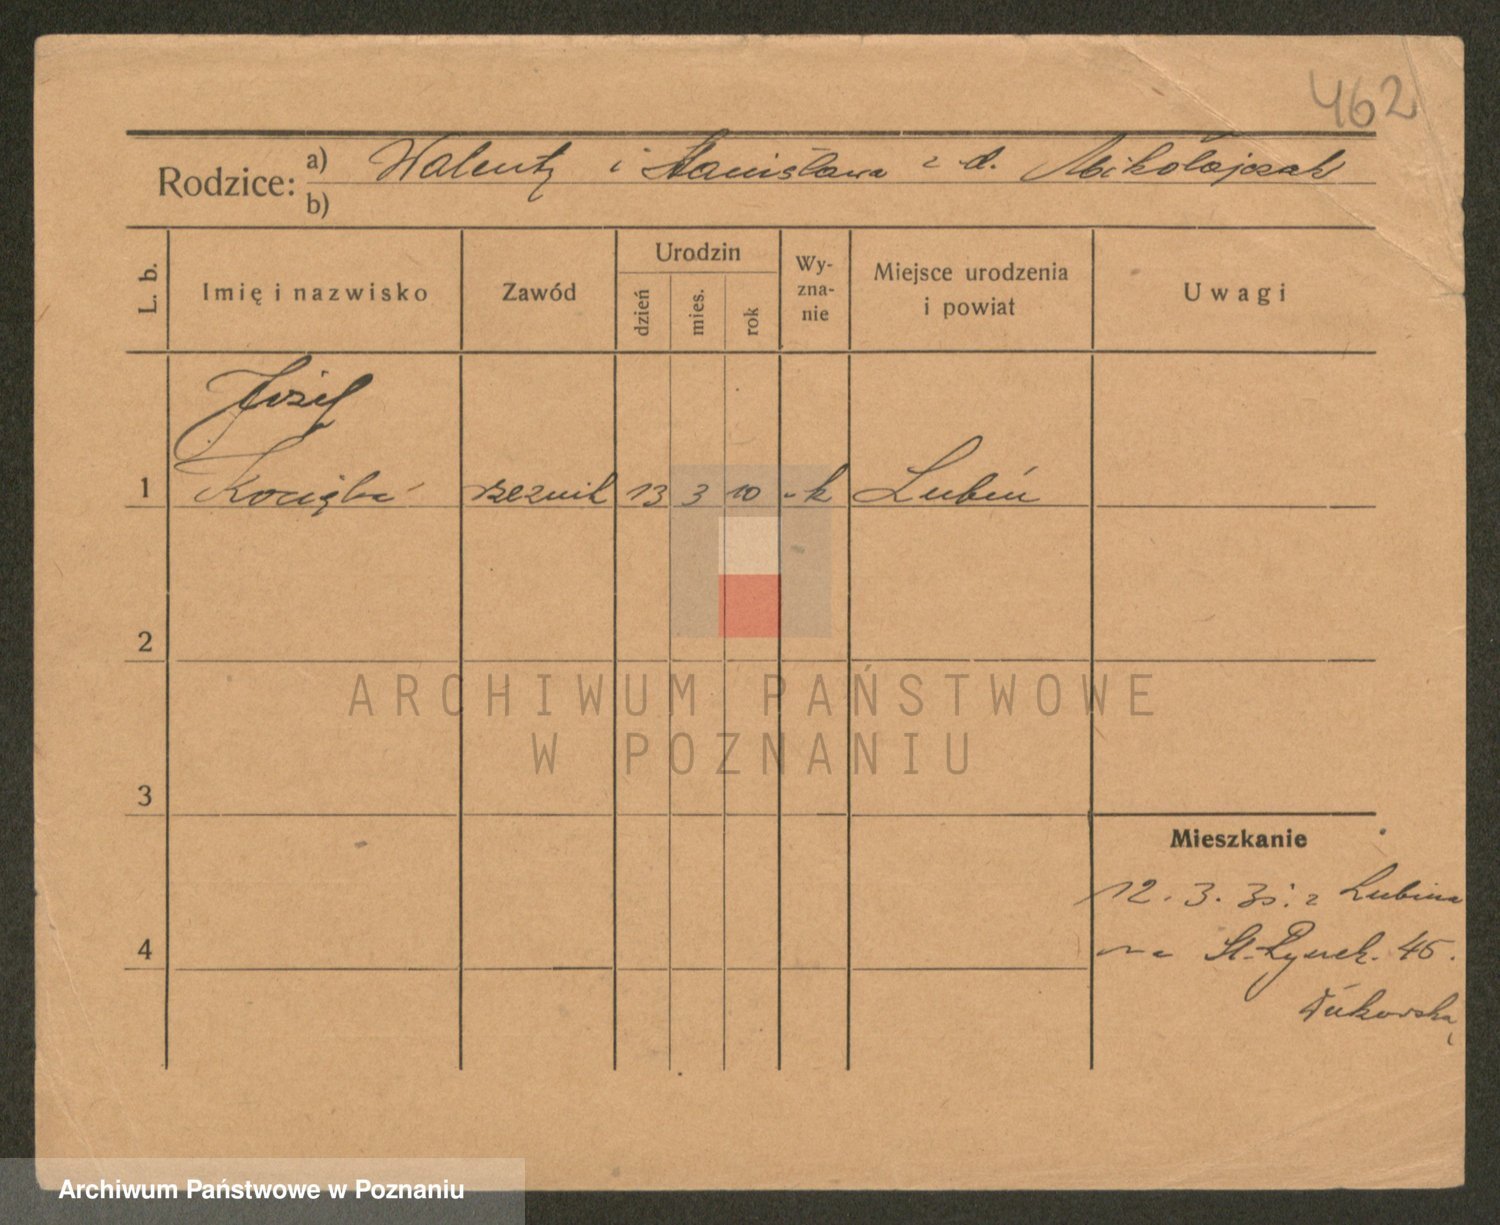 462
Rodzice: a) Walenty i Stanisława z d. Mikołajczak
b)
L. b.
Imię i nazwisko
Zawód
Urodzin
dzień
mies.
rok
Wy-
zna-
nie
Miejsce urodzenia
i powiat
Uwagi
Józef
1 Kocięba rzeznik 13 3 10 rk Lubiń
2
3
4
Mieszkanie
12. 3. 35. z Lubinia
na St. Rynek. 45.
ARCHIWUM PAŃSTWOWE
W POZNANIU
Archiwum Państwowe w Poznaniu